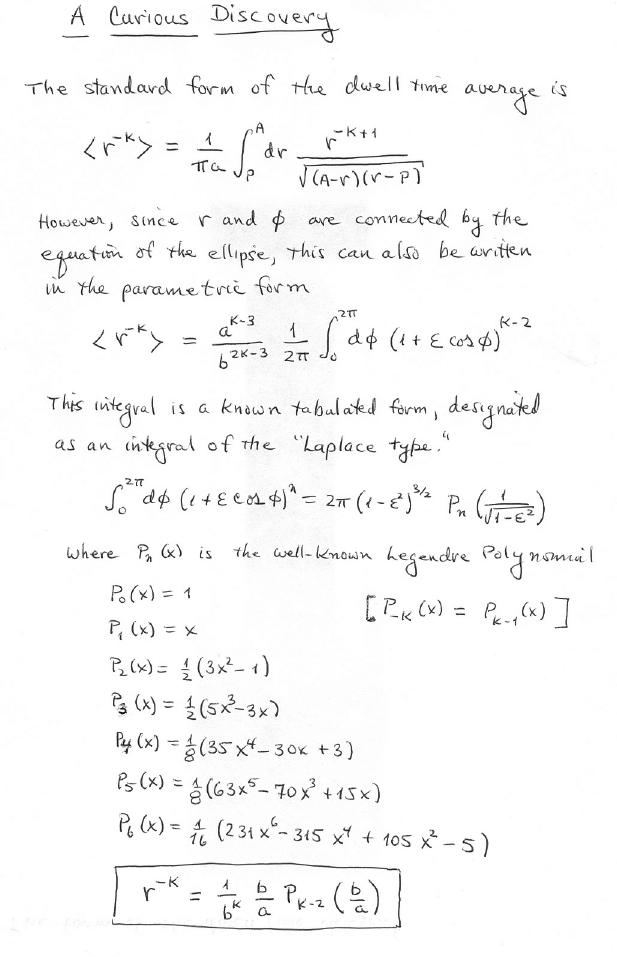 A Curious Discovery
The standard form of the dwell time average is
<r^{-K}> = \frac{1}{πa} \int_P^A dr \frac{r^{-K+1}}{\sqrt{(A-r)(r-P)}}
However, since r and φ are connected by the
equation of the ellipse, this can also be written
in the parametric form
<r^{-K}> = \frac{a^{K-3}}{b^{2K-3}} \frac{1}{2π} \int_0^{2π} dφ (1 + ε cos φ)^{K-2}
This integral is a known tabulated form, designated
as an integral of the "Laplace type."
\int_0^{2π} dφ (1 + ε cos φ)^n = 2π (1-ε²)^{3/2} P_n (\frac{1}{\sqrt{1-ε²}})
where P_n (x) is the well-known Legendre Polynomial
P_0(x) = 1 [P_{-K} (x) = P_{K-1} (x)]
P_1 (x) = x
P_2(x) = \frac{1}{2} (3x² - 1)
P_3 (x) = \frac{1}{2} (5x³ - 3x)
P_4 (x) = \frac{1}{8} (35 x⁴ - 30x + 3)
P_5 (x) = \frac{1}{8} (63x⁵ - 70x³ + 15x)
P_6 (x) = \frac{1}{16} (231 x⁶ - 315 x⁴ + 105 x² - 5)
r^{-K} = \frac{1}{b^K} \frac{b}{a} P_{K-2} (\frac{b}{a})